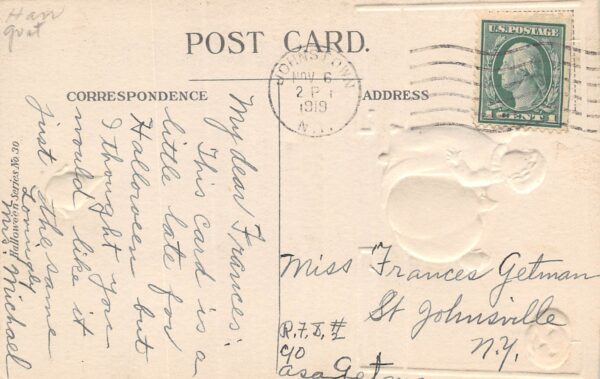 Han
gvat
POST CARD.
CORRESPONDENCE
ADDRESS
Halloween Series No. 30
U.S. POSTAGE
1 CENT 1
JOHNSTOWN
NOV 6
2 P
1919
N.
My dear Frances:
This card is a
little late for
Halloween but
I thought you
would like it
just the same
Lovingly
Mrs Michael
Miss Frances Getman
St Johnsville
N.Y.
R.F.D. #1
c/o
Asa Getman